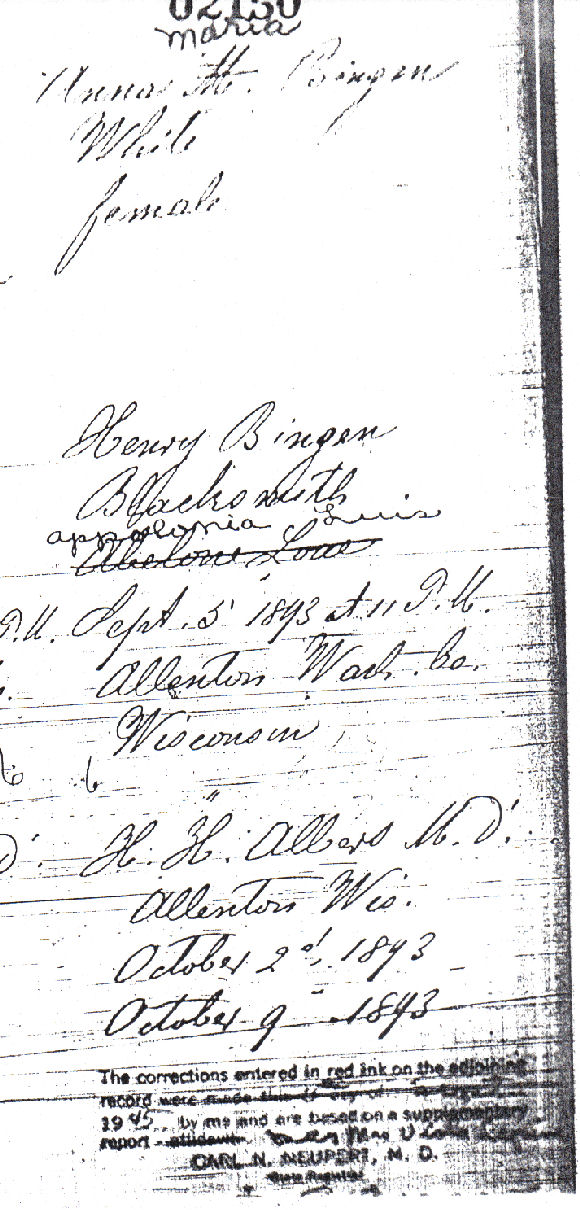 02130
maria
Anna M. Bingen
White
female
Henry Bingen
Blacksmith
appolonia Luis
Abelone Louis
P.M. Sept. 5" 1893 at 11 P.M.
Allenton Wash. Co.
Wisconsin
6
D. H. H. Albers M.D.
Allenton Wis.
October 2d, 1893
October 9" 1893
The corrections entered in red ink on the adjoining
record were made this day of
1945 by me and are based on a supplementary
report affidavit Mrs
CARL N. NEUPERT, M. D.
State Registrar